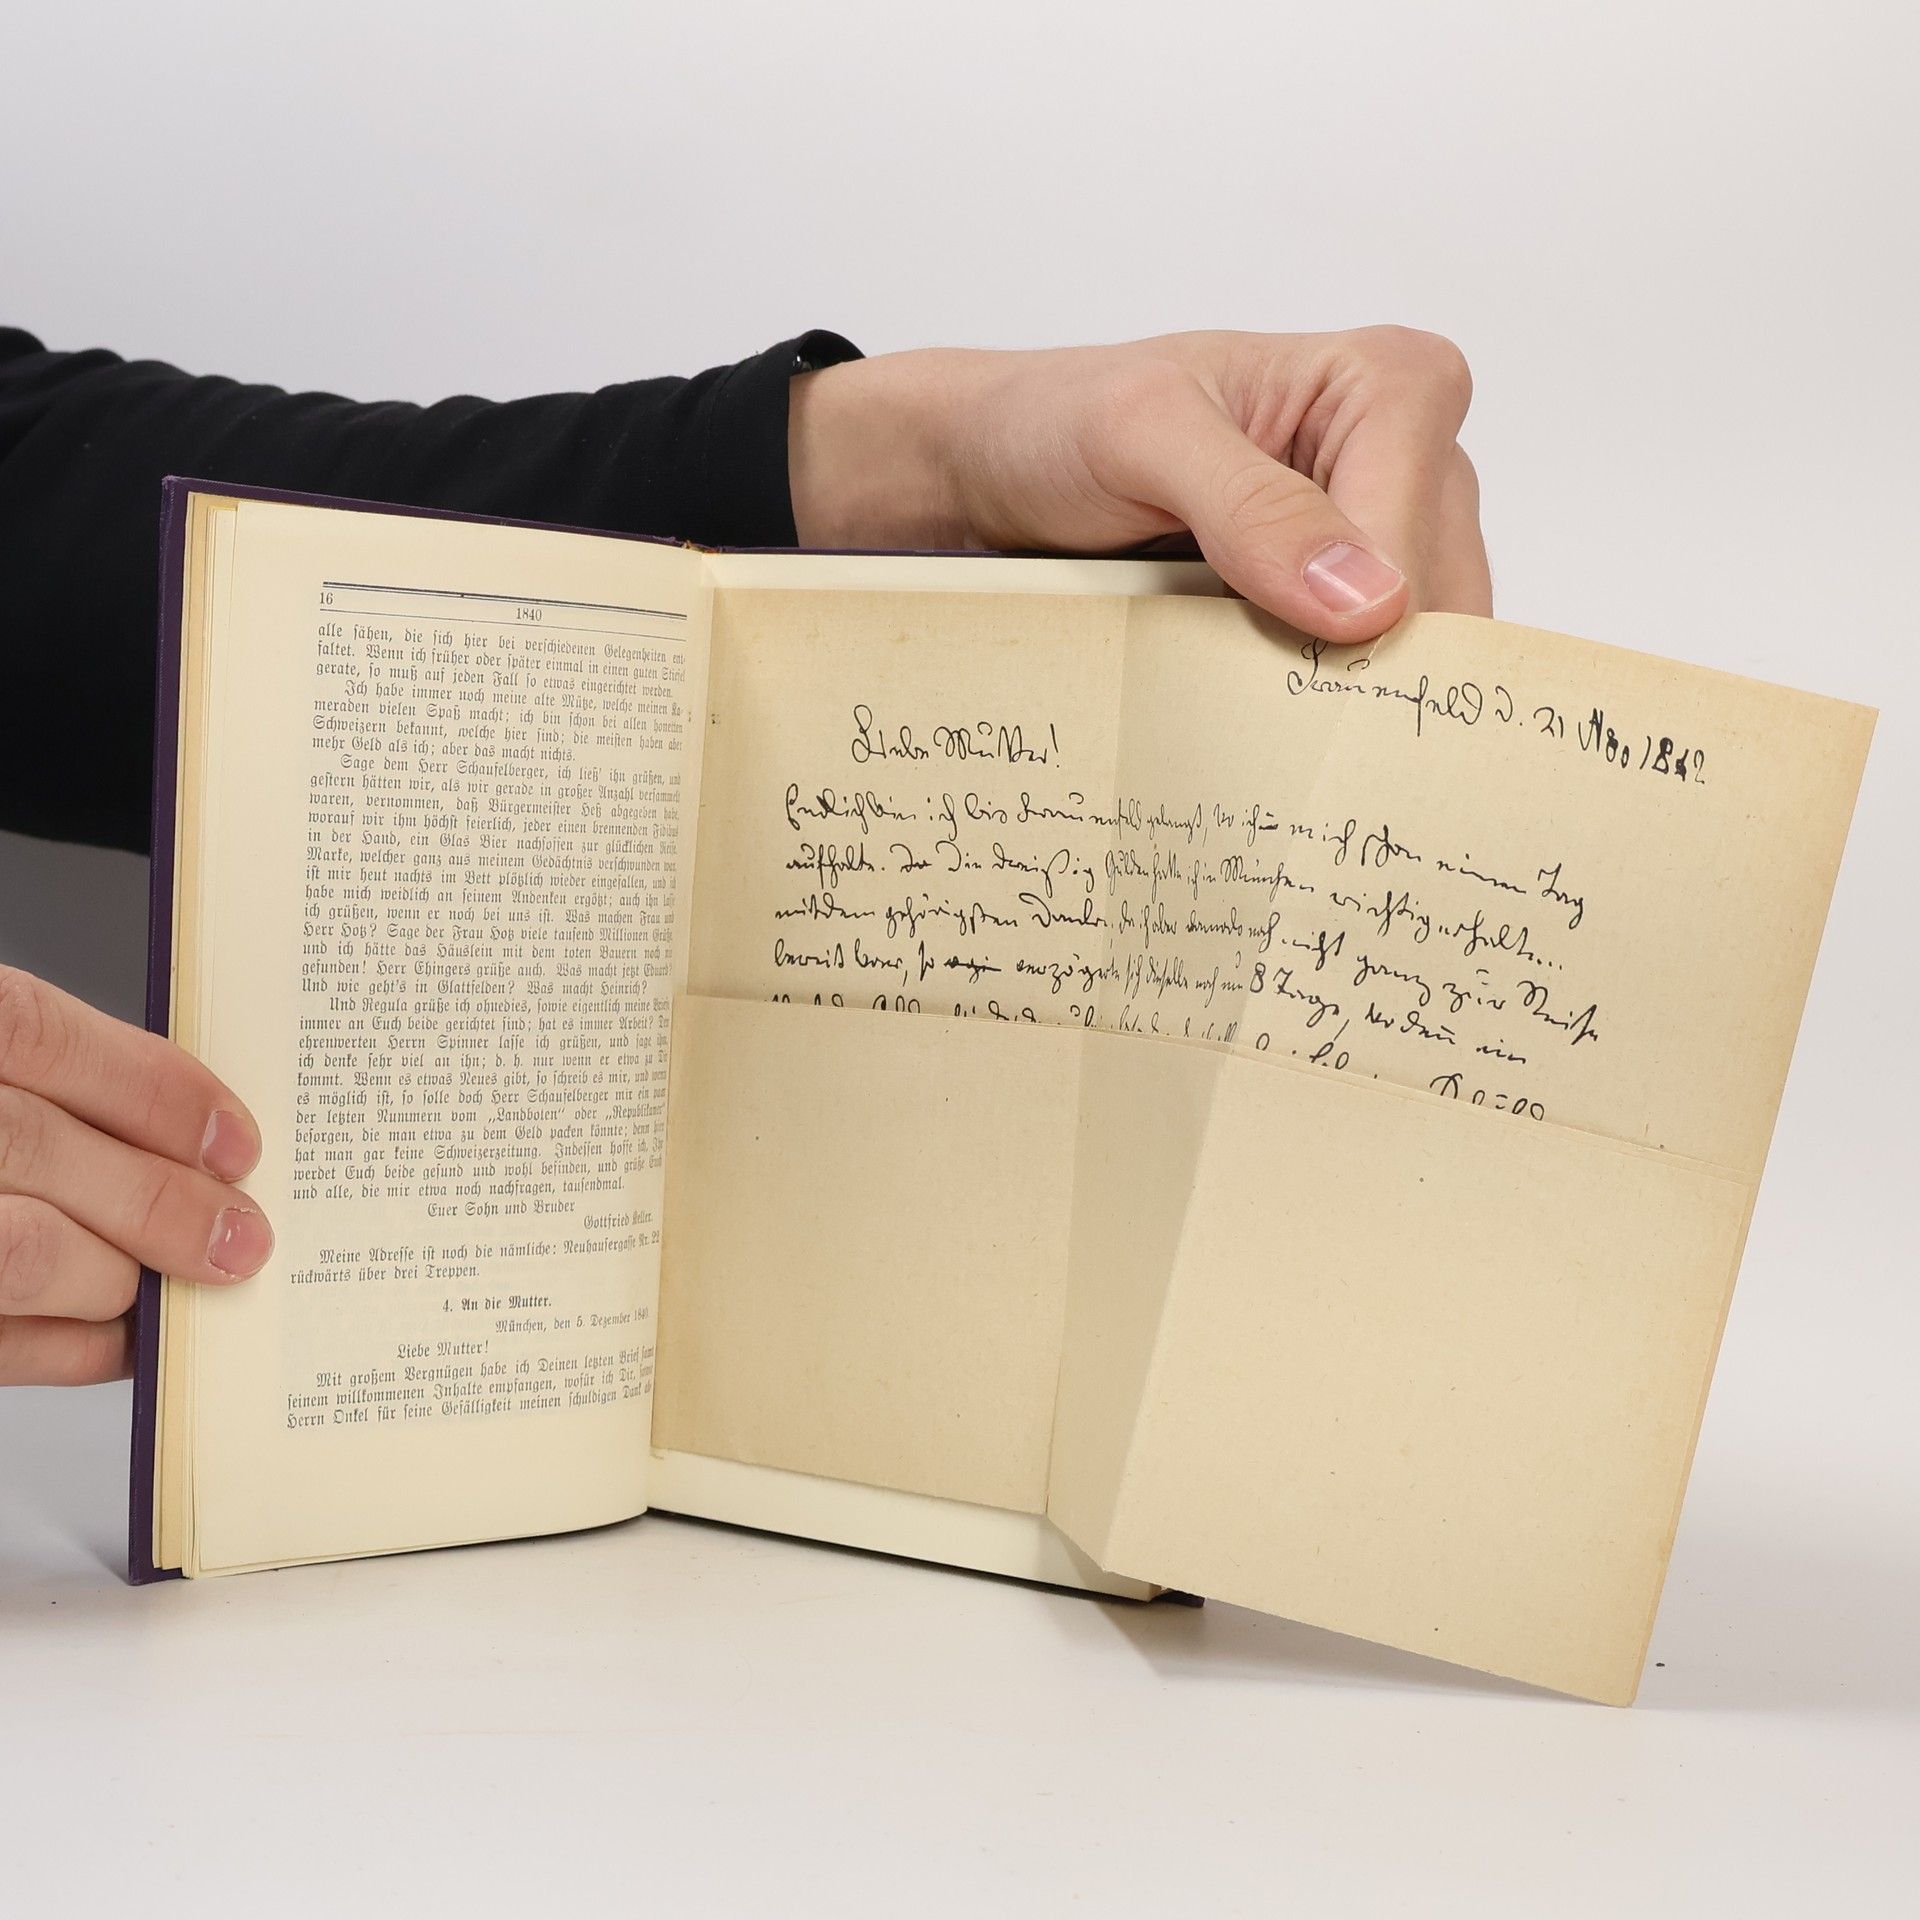 16
1840
alle sähen, die sich hier bei verschiedenen Gelegenheiten ent-
faltet. Wenn ich früher oder später einmal in einen guten Stiefel
gerate, so muß auf jeden Fall so etwas eingerichtet werden.
Ich habe immer noch meine alte Mütze, welche meinen Ka-
meraden vielen Spaß macht; ich bin schon bei allen honetten
Schweizern bekannt, welche hier sind; die meisten haben aber
mehr Geld als ich; aber das macht nichts.
Sage dem Herr Schaufelberger, ich ließ' ihn grüßen, und
gestern hätten wir, als wir gerade in großer Anzahl versammelt
waren, vernommen, daß Bürgermeister Heß abgegeben habe,
worauf wir ihm höchst feierlich, jeder einen brennenden Fidibus
in der Hand, ein Glas Bier nachsoffen zur glücklichen Reise.
Marke, welcher ganz aus meinem Gedächtnis verschwunden war,
ist mir heut nachts im Bett plötzlich wieder eingefallen, und ich
habe mich weidlich an seinem Andenken ergötzt; auch ihn lasse
ich grüßen, wenn er noch bei uns ist. Was machen Frau und
Herr Hotz? Sage der Frau Hotz viele tausend Millionen Grüße
und ich hätte das Häuslein mit dem toten Bauern noch nie
gefunden! Herr Ehingers grüße auch. Was macht jetzt Eduard?
Und wie geht's in Glattfelden? Was macht Heinrich?
Und Regula grüße ich ohnedies, sowie eigentlich meine Briefe
immer an Euch beide gerichtet sind; hat es immer Arbeit? Den
ehrenwerten Herrn Spinner lasse ich grüßen, und sage ihm,
ich denke sehr viel an ihn; d. h. nur wenn er etwa zu Dir
kommt. Wenn es etwas Neues gibt, so schreib es mir, und wenn
es möglich ist, so solle doch Herr Schaufelberger mir ein paar
der letzten Nummern vom „Landboten“ oder „Republikaner“
besorgen, die man etwa zu dem Geld packen könnte; denn hier
hat man gar keine Schweizerzeitung. Indessen hoffe ich, Ihr
werdet Euch beide gesund und wohl befinden, und grüße Euch
und alle, die mir etwa noch nachfragen, tausendmal.
Euer Sohn und Bruder
Gottfried Keller.
Meine Adresse ist noch die nämliche: Neuhausergasse Nr. 22
rückwärts über drei Treppen.
4. An die Mutter.
München, den 5. Dezember 1840.
Liebe Mutter!
Mit großem Vergnügen habe ich Deinen letzten Brief samt
seinem willkommenen Inhalte empfangen, wofür ich Dir, sowie
Herrn Onkel für seine Gefälligkeit meinen schuldigen Dank ab-
Frauenfeld d. 21 Nov 1842
Liebe Mutter!
Endlich bin ich bis Frauenfeld gelangt, wo ich mich schon einen Tag
aufhalte. Da die dreißig Gulden hatte ich in München richtig erhalten
mit dem gehörigsten Danke, da ich aber damals noch nicht ganz zur Reise
bereit war, so verzögerte sich dieselbe noch um 8 Tage, wo dann ein